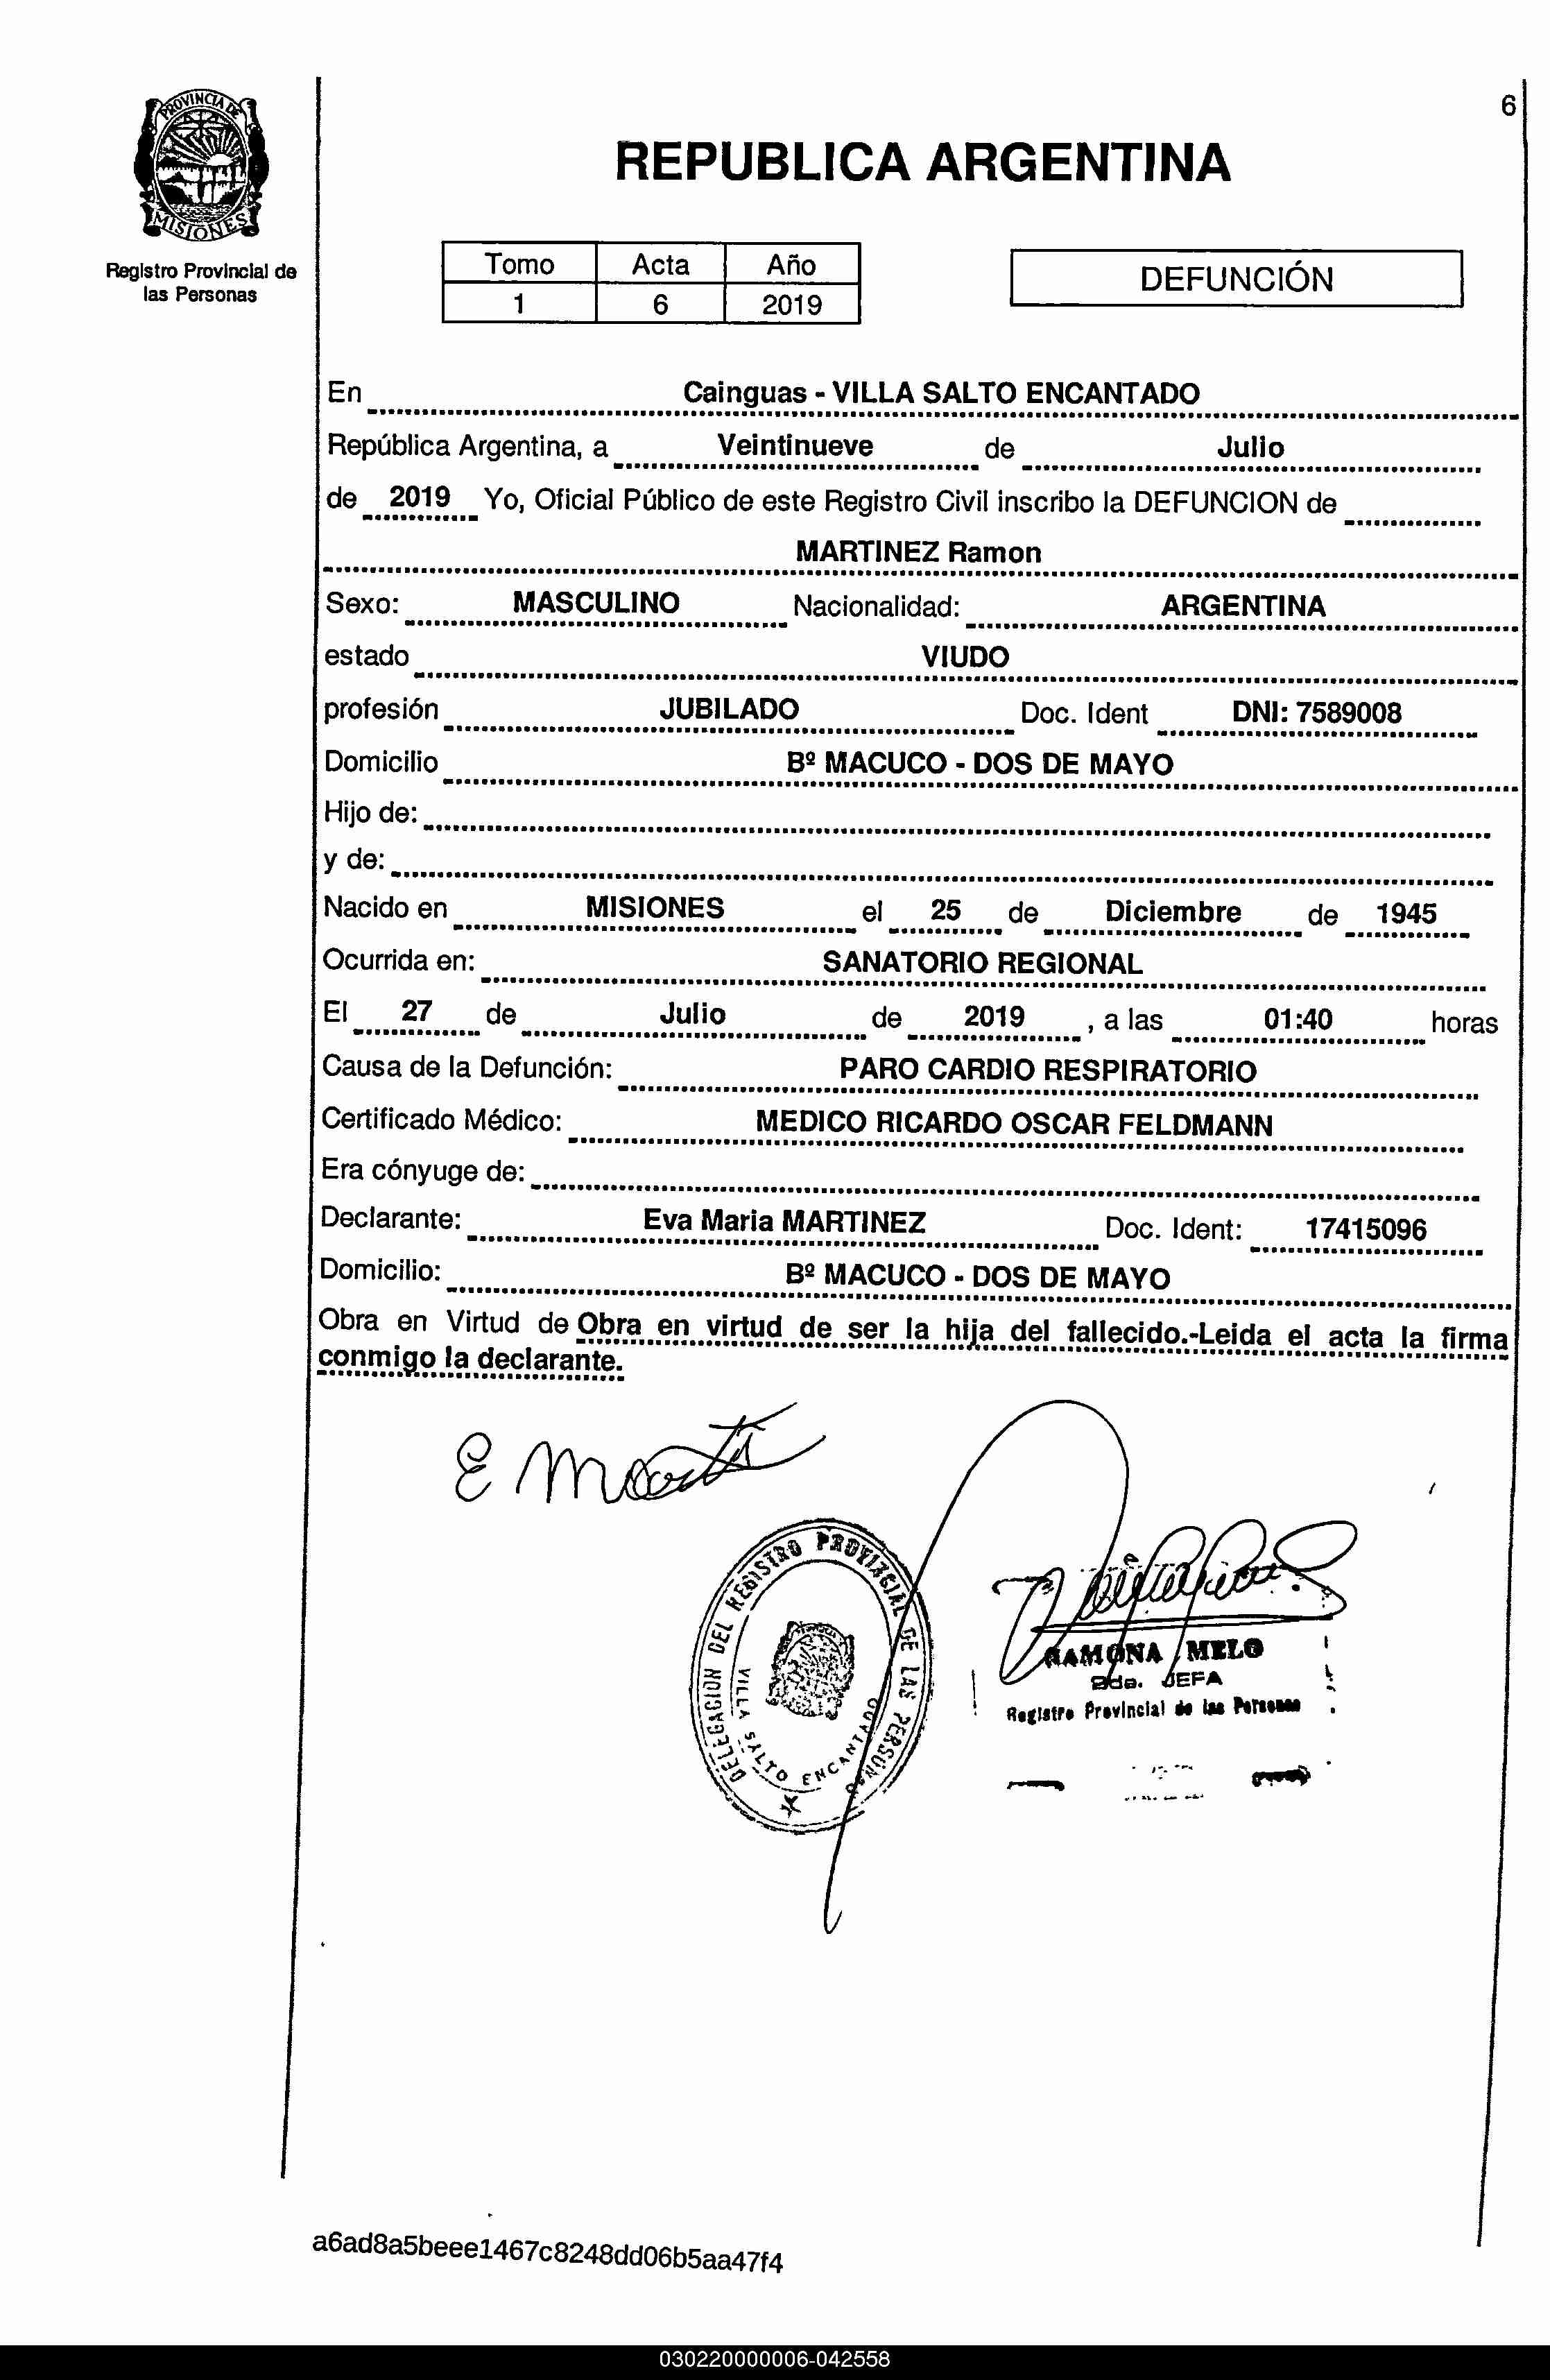 PROVINCIA DE
MISIONES
Registro Provincial de
las Personas
6
REPUBLICA ARGENTINA
Tomo Acta Año
1 6 2019
DEFUNCIÓN
En Cainguas - VILLA SALTO ENCANTADO
República Argentina, a Veintinueve de Julio
de 2019 Yo, Oficial Público de este Registro Civil inscribo la DEFUNCION de
MARTINEZ Ramon
Sexo: MASCULINO Nacionalidad: ARGENTINA
estado VIUDO
profesión JUBILADO Doc. Ident DNI: 7589008
Domicilio Bº MACUCO - DOS DE MAYO
Hijo de:
y de:
Nacido en MISIONES el 25 de Diciembre de 1945
Ocurrida en: SANATORIO REGIONAL
El 27 de Julio de 2019 , a las 01:40 horas
Causa de la Defunción: PARO CARDIO RESPIRATORIO
Certificado Médico: MEDICO RICARDO OSCAR FELDMANN
Era cónyuge de:
Declarante: Eva Maria MARTINEZ Doc. Ident: 17415096
Domicilio: Bº MACUCO - DOS DE MAYO
Obra en Virtud de Obra en virtud de ser la hija del fallecido.-Leida el acta la firma
conmigo la declarante.
DELEGACION DEL REGISTRO PROVINCIAL DE LAS PERSONAS
VILLA SALTO ENCANTADO
RAMONA MELO
2da. JEFA
Registro Provincial de las Personas
a6ad8a5beee1467c8248dd06b5aa47f4
030220000006-042558